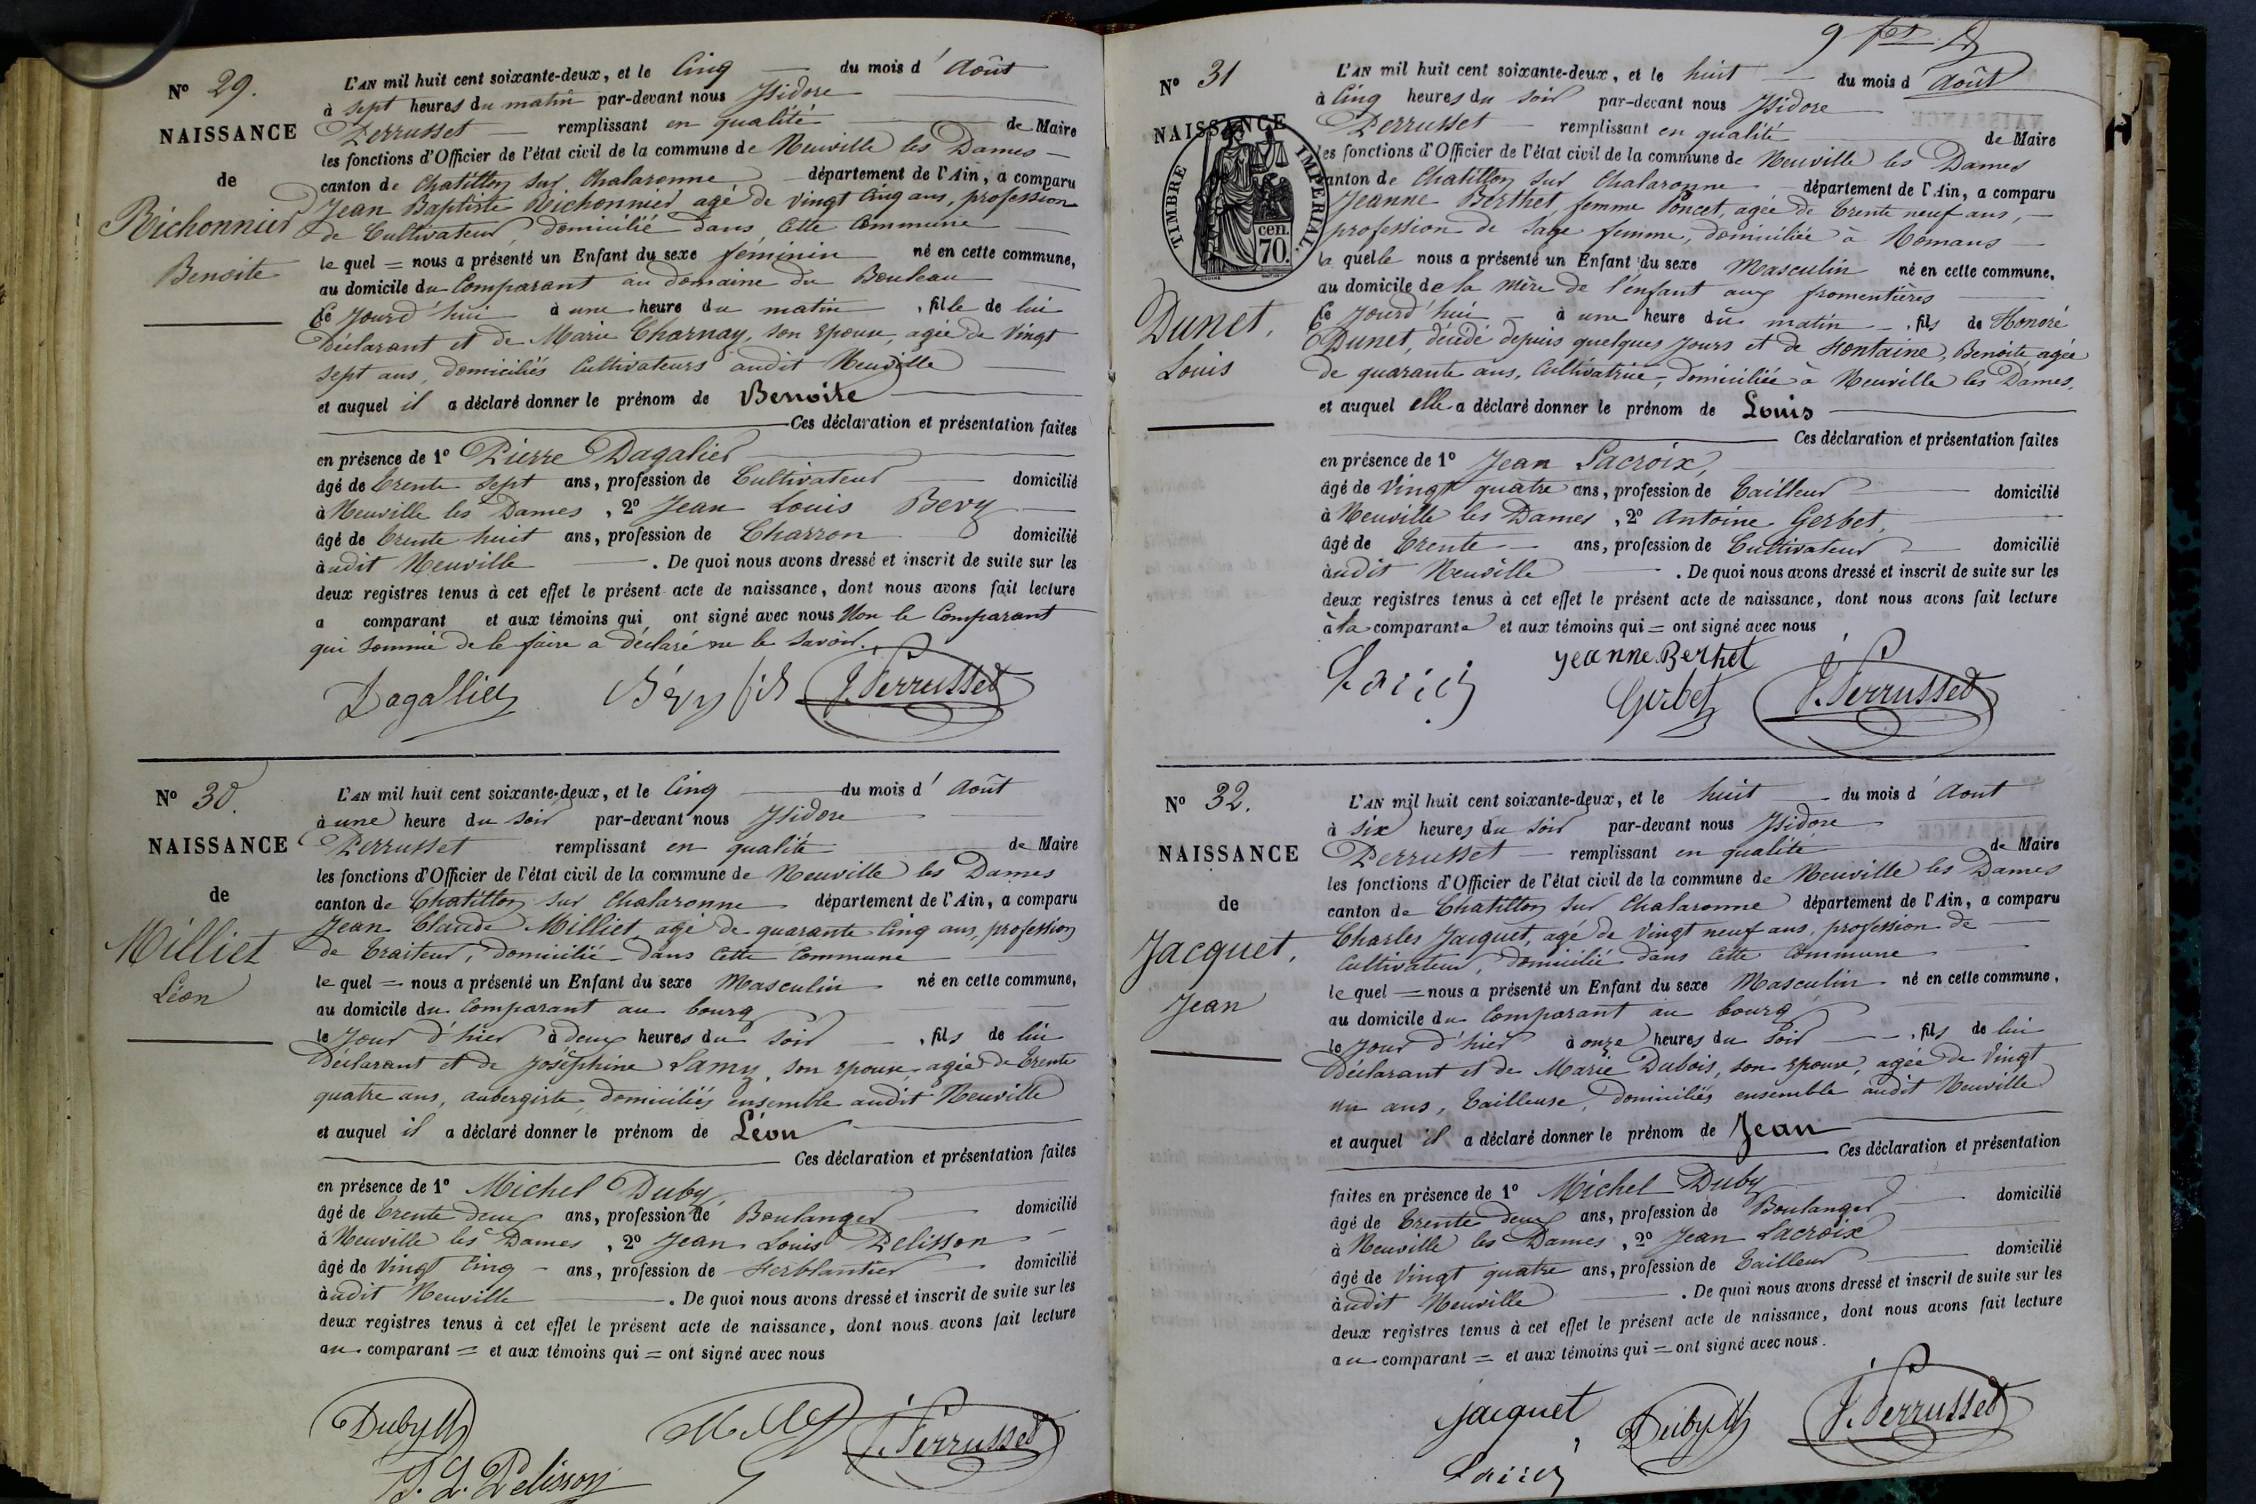 N° 29.
NAISSANCE
de
Béchonnier
Benoite
L'AN mil huit cent soixante-deux, et le Cinq du mois d' Août
à sept heures du matin par-devant nous Isidore
Perrusset remplissant en qualité de Maire
les fonctions d'Officier de l'état civil de la commune de Neuville les Dames
canton de Chatillon sur Chalaronne département de l'Ain, a comparu
Jean Baptiste Béchonnier agé de vingt Cinq ans, profession
de Cultivateur, domicilié dans cette Commune
le quel = nous a présenté un Enfant du sexe féminin né en cette commune,
au domicile du Comparant au domaine du Bouleau
Ce jourd'hui à une heure du matin, fille de lui
Déclarant et de Marie Charnay, son épouse, agée de Vingt
sept ans, domiciliés Cultivateurs audit Neuville
et auquel il a déclaré donner le prénom de Benoite
Ces déclaration et présentation faites
en présence de 1° Pierre Dagalier
âgé de trente sept ans, profession de Cultivateur domicilié
à Neuville les Dames, 2° Jean Louis Bevy
âgé de trente huit ans, profession de Charron domicilié
àudit Neuville. De quoi nous avons dressé et inscrit de suite sur les
deux registres tenus à cet effet le présent acte de naissance, dont nous avons fait lecture
a comparant et aux témoins qui ont signé avec nous Non le Comparant
qui sommé de le faire a déclaré ne le savoir.
Dagallier Bévy fils J. Perrusset
N° 30.
NAISSANCE
de
Milliet
Léon
L'AN mil huit cent soixante-deux, et le Cinq du mois d' Août
à une heure du soir par-devant nous Isidore
Perrusset remplissant en qualité de Maire
les fonctions d'Officier de l'état civil de la commune de Neuville les Dames
canton de Chatillon sur Chalaronne département de l'Ain, a comparu
Jean Claude Milliet agé de quarante Cinq ans, profession
de traiteur, domicilié dans cette Commune
le quel = nous a présenté un Enfant du sexe Masculin né en cette commune,
au domicile du Comparant au bourg
le jour d'hier à deux heures du soir, fils de lui
Déclarant et de Joséphine Lamy, son épouse, agée de trente
quatre ans, aubergiste, domiciliés ensemble audit Neuville
et auquel il a déclaré donner le prénom de Léon
Ces déclaration et présentation faites
en présence de 1° Michel Duby,
âgé de trente deux ans, profession de Boulanger domicilié
à Neuville les Dames, 2° Jean Louis Pelisson
âgé de Vingt Cinq ans, profession de Ferblantier domicilié
àudit Neuville. De quoi nous avons dressé et inscrit de suite sur les
deux registres tenus à cet effet le présent acte de naissance, dont nous avons fait lecture
au comparant = et aux témoins qui = ont signé avec nous
Duby M J. Perrusset
J. L. Pelisson
N° 31
NAISSANCE
TIMBRE IMPERIAL.
70 cen.
Dunet,
Louis
L'AN mil huit cent soixante-deux, et le huit du mois d' Août
à Cinq heures du soir par-devant nous Isidore
Perrusset remplissant en qualité de Maire
les fonctions d'Officier de l'état civil de la commune de Neuville les Dames
canton de Chatillon sur Chalaronne département de l'Ain, a comparu
Jeanne Berthet femme Poncet, agée de trente neuf ans,
profession de sage femme, domiciliée à Romans
la quelle nous a présenté un Enfant du sexe Masculin né en cette commune,
au domicile de la mère de l'enfant aux fromentières
Ce jourd'hui à une heure du matin, fils de Honoré
Dunet, décédé depuis quelques jours et de Fontaine, Benoite agée
de quarante ans, Cultivatrice, domiciliée à Neuville les Dames,
et auquel elle a déclaré donner le prénom de Louis
Ces déclaration et présentation faites
en présence de 1° Jean Lacroix,
âgé de Vingt quatre ans, profession de tailleur domicilié
à Neuville les Dames, 2° Antoine Gerbet,
âgé de trente ans, profession de Cultivateur domicilié
àudit Neuville. De quoi nous avons dressé et inscrit de suite sur les
deux registres tenus à cet effet le présent acte de naissance, dont nous avons fait lecture
à la comparante et aux témoins qui = ont signé avec nous
Jeanne Berhet
Gerbet J. Perrusset
N° 32.
NAISSANCE
de
Jacquet,
Jean
L'AN mil huit cent soixante-deux, et le huit du mois d' Aout
à six heures du soir par-devant nous Isidore
Perrusset remplissant en qualité de Maire
les fonctions d'Officier de l'état civil de la commune de Neuville les Dames
canton de Chatillon sur Chalaronne département de l'Ain, a comparu
Charles Jacquet, agé de Vingt neuf ans, profession de
Cultivateur, domicilié dans cette Commune
le quel = nous a présenté un Enfant du sexe Masculin né en cette commune,
au domicile du Comparant au bourg
le jour d'hier à onze heures du soir, fils de lui
Déclarant et de Marie Dubois, son épouse, agée de Vingt
un ans, tailleuse, domiciliés ensemble audit Neuville
et auquel il a déclaré donner le prénom de Jean
Ces déclaration et présentation
faites en présence de 1° Michel Duby
âgé de trente deux ans, profession de Boulanger domicilié
à Neuville les Dames, 2° Jean Lacroix
âgé de Vingt quatre ans, profession de tailleur domicilié
àudit Neuville. De quoi nous avons dressé et inscrit de suite sur les
deux registres tenus à cet effet le présent acte de naissance, dont nous avons fait lecture
au comparant = et aux témoins qui = ont signé avec nous.
Jacquet Duby M J. Perrusset